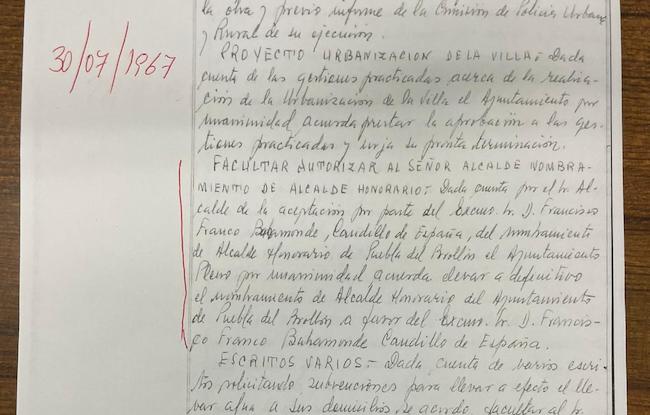 la obra y previo informe de la Comisión de Policía Urbana
y Rural de su ejecución.
30/07/1967
PROYECTO URBANIZACION DE LA VILLA:- Dada
cuenta de las gestiones practicadas acerca de la realiza-
ción de la Urbanización de la Villa el Ayuntamiento por
unanimidad, acuerda prestar la aprobación a las ges-
tiones practicadas y urja su pronta terminación.
FACULTAR AUTORIZAR AL SEÑOR ALCALDE NOMBRA-
MIENTO DE ALCALDE HONORARIO:- Dada cuenta por el Sr. Al-
calde de la aceptación por parte del Excmo. Sr. D. Francisco
Franco Bahamonde, Caudillo de España, del nombramiento
de Alcalde Honorario de Puebla del Brollón el Ayuntamiento
Pleno por unanimidad acuerda elevar a definitivo
el nombramiento de Alcalde Honorario del Ayuntamiento
de Puebla del Brollón a favor del Excmo. Sr. D. Francis-
co Franco Bahamonde Caudillo de España.
ESCRITOS VARIOS:- Dada cuenta de varios escri-
tos solicitando subvenciones para llevar a efecto el lle-
var agua a sus domicilios se acordó facultar al Sr.